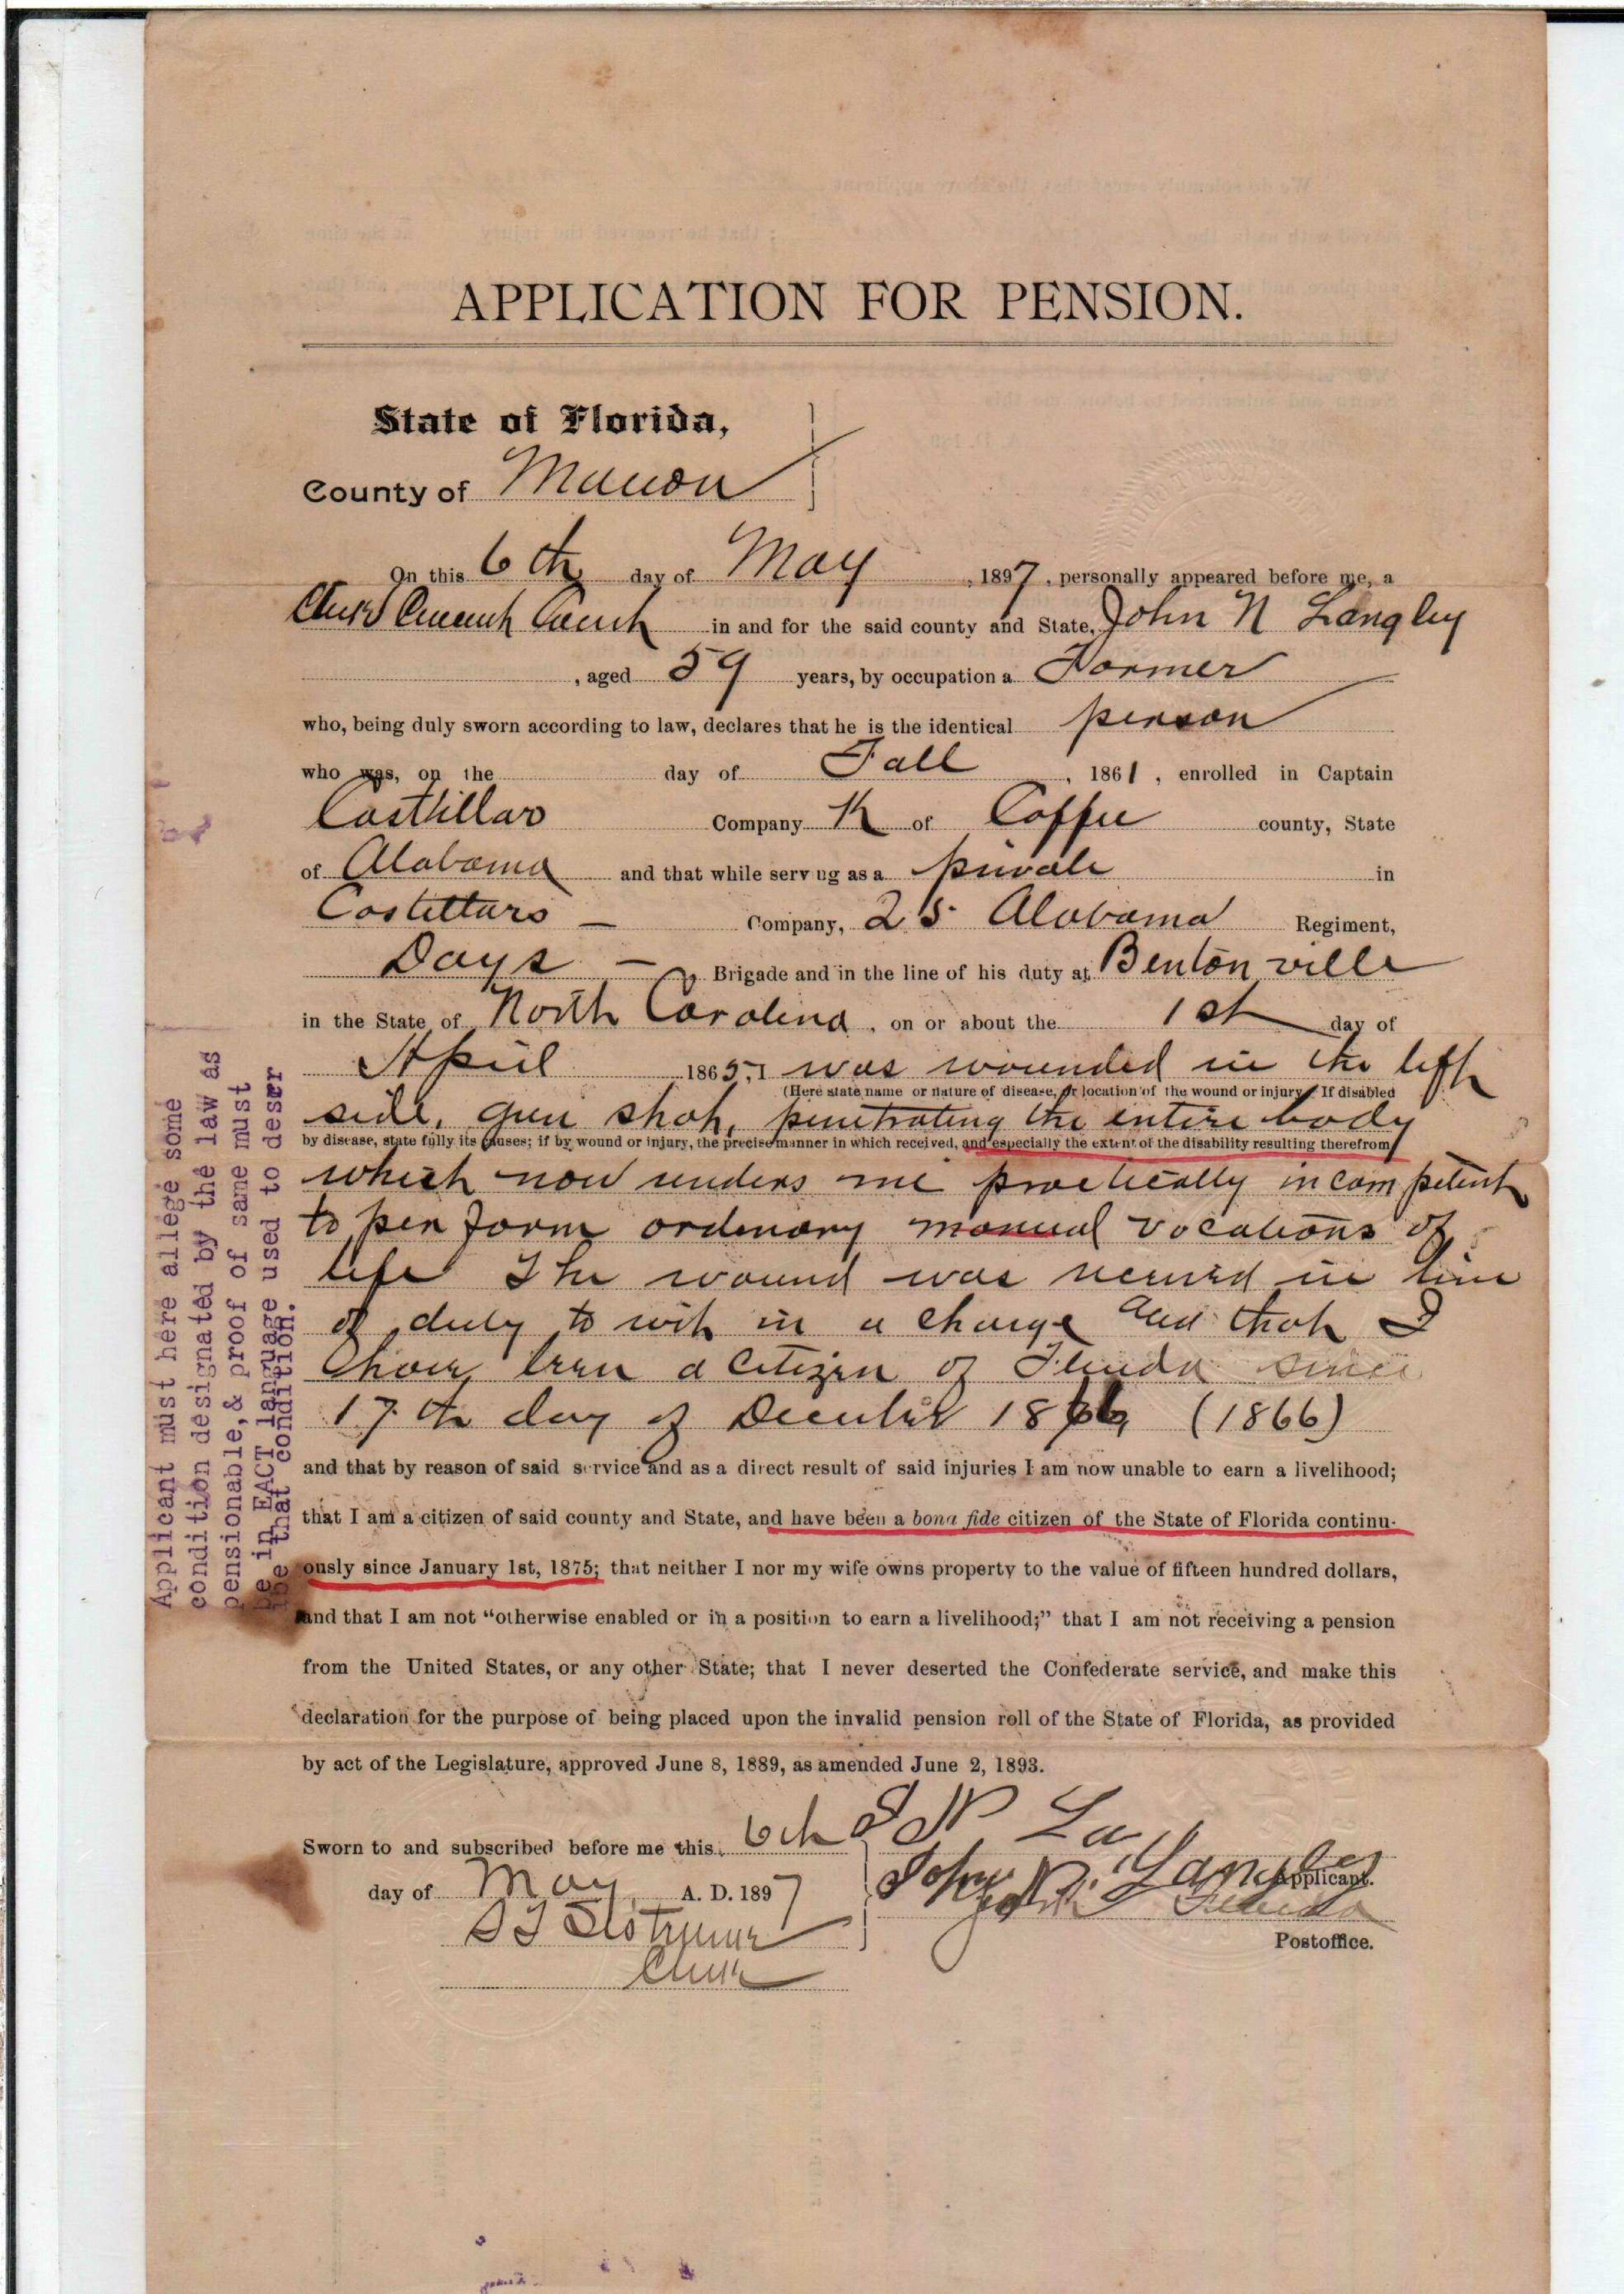 APPLICATION FOR PENSION.
State of Florida,
County of Marion
On this 6th day of May, 1897, personally appeared before me, a
Clerk Circuit Court in and for the said county and State, John N Langley
, aged 59 years, by occupation a Farmer
who, being duly sworn according to law, declares that he is the identical person
who was, on the day of Fall, 1861, enrolled in Captain
Costhillos Company K of Coffee county, State
of Alabama and that while serv ug as a private in
Company, 25 Alabama Regiment,
Days — Brigade and in the line of his duty at Bentonville
in the State of North Carolina, on or about the 1st day of
April 1865, I was wounded in the left
(Here state name or nature of disease, or location of the wound or injury. If disabled
side, gun shot, penetrating the entire body
by disease, state fully its causes; if by wound or injury, the precise manner in which received, and especially the extent of the disability resulting therefrom
which now renders me practically incompetent
to perform ordenary manual vocations of
life The wound was received in line
of duty to wit in a charge and that I
have been a citizen of Florida since
17th day of December 1866 (1866)
and that by reason of said service and as a direct result of said injuries I am now unable to earn a livelihood;
that I am a citizen of said county and State, and have been a bona fide citizen of the State of Florida continu-
ously since January 1st, 1875; that neither I nor my wife owns property to the value of fifteen hundred dollars,
and that I am not "otherwise enabled or in a position to earn a livelihood;" that I am not receiving a pension
from the United States, or any other State; that I never deserted the Confederate service, and make this
declaration for the purpose of being placed upon the invalid pension roll of the State of Florida, as provided
by act of the Legislature, approved June 8, 1889, as amended June 2, 1893.
Sworn to and subscribed before me this 6th J N La
day of May A. D. 1897 John N. Langley Applicant.
Florida
Postoffice.
Clerk
Applicant must here allege some
condition designated by the law as
pensionable,& proof of same must
be in EACT language used to descr
ibe that condition.